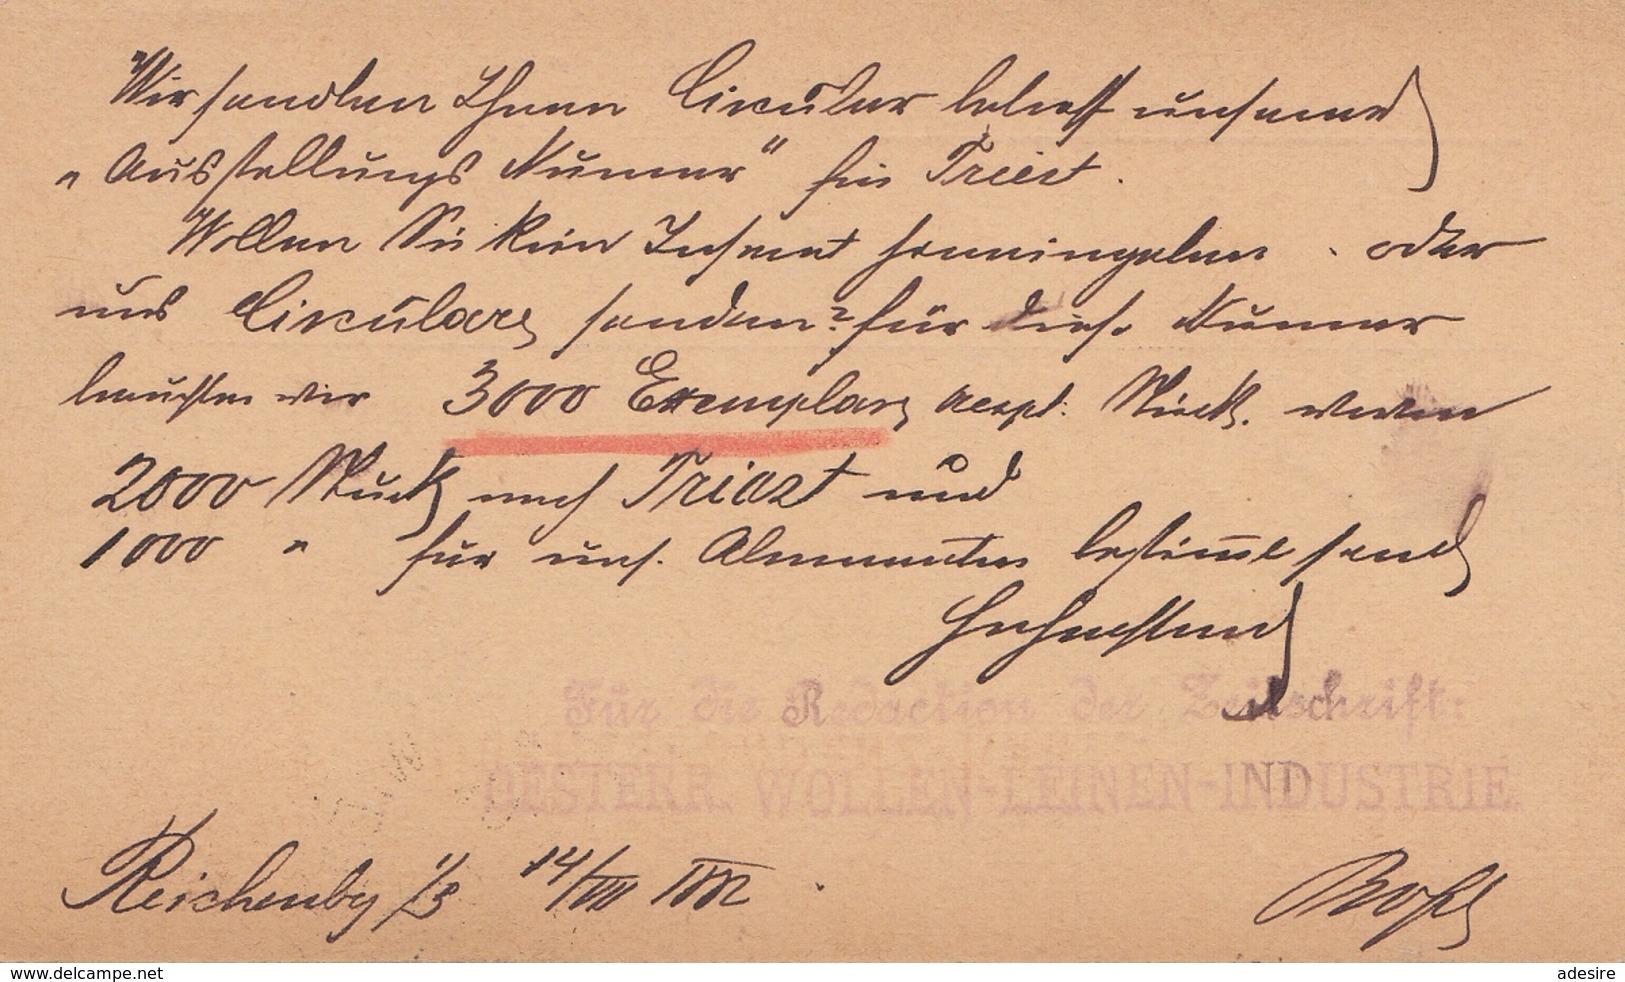 Wir sandten Ihnen Circular betreff unserer
„Ausstellungs Numer" für Triest.
Wollen Sie kein Inserat hereingeben . oder
uns Circulare senden? für diese Numer
brauchten wir 3000 Exemplare respt. Stück. wovon
2000 Stück nach Triest und
1000 " für uns. Abonnenten bestimmt sind
Hochachtend
Für die Redaction der Zeitschrift:
OESTERR. WOLLEN-LEINEN-INDUSTRIE.
Reichenbg i/B 14/VIII
www.delcampe.net
adesire